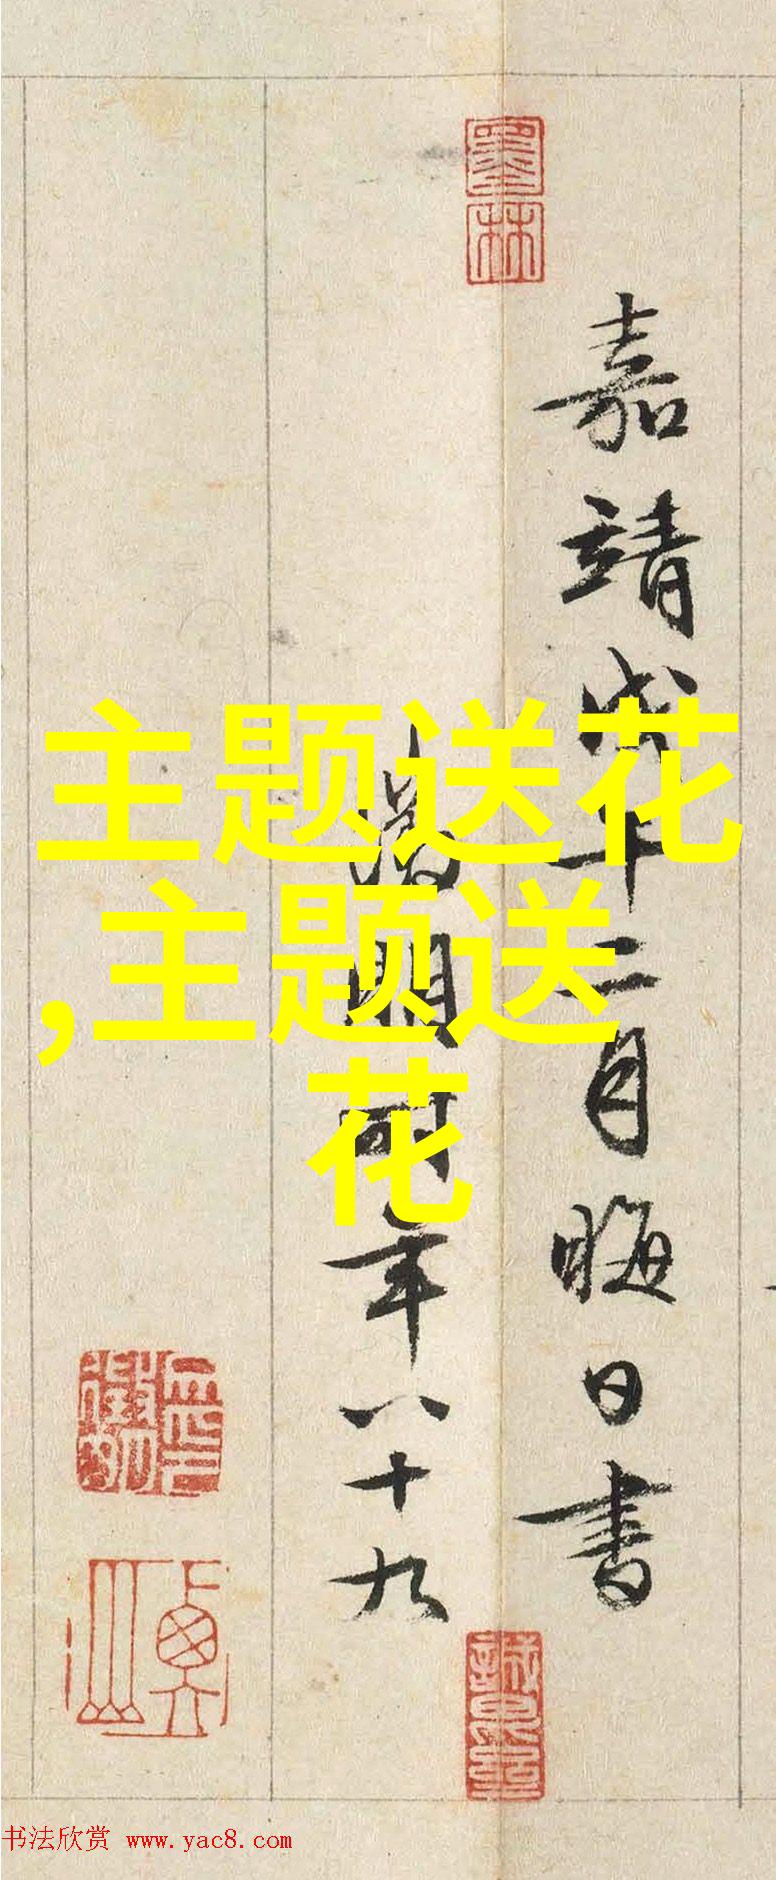 墨林
嘉靖戊午二月晦日書
徵明時年八十九
主题送花
,主题送
花
书法欣赏 www.yac8.com